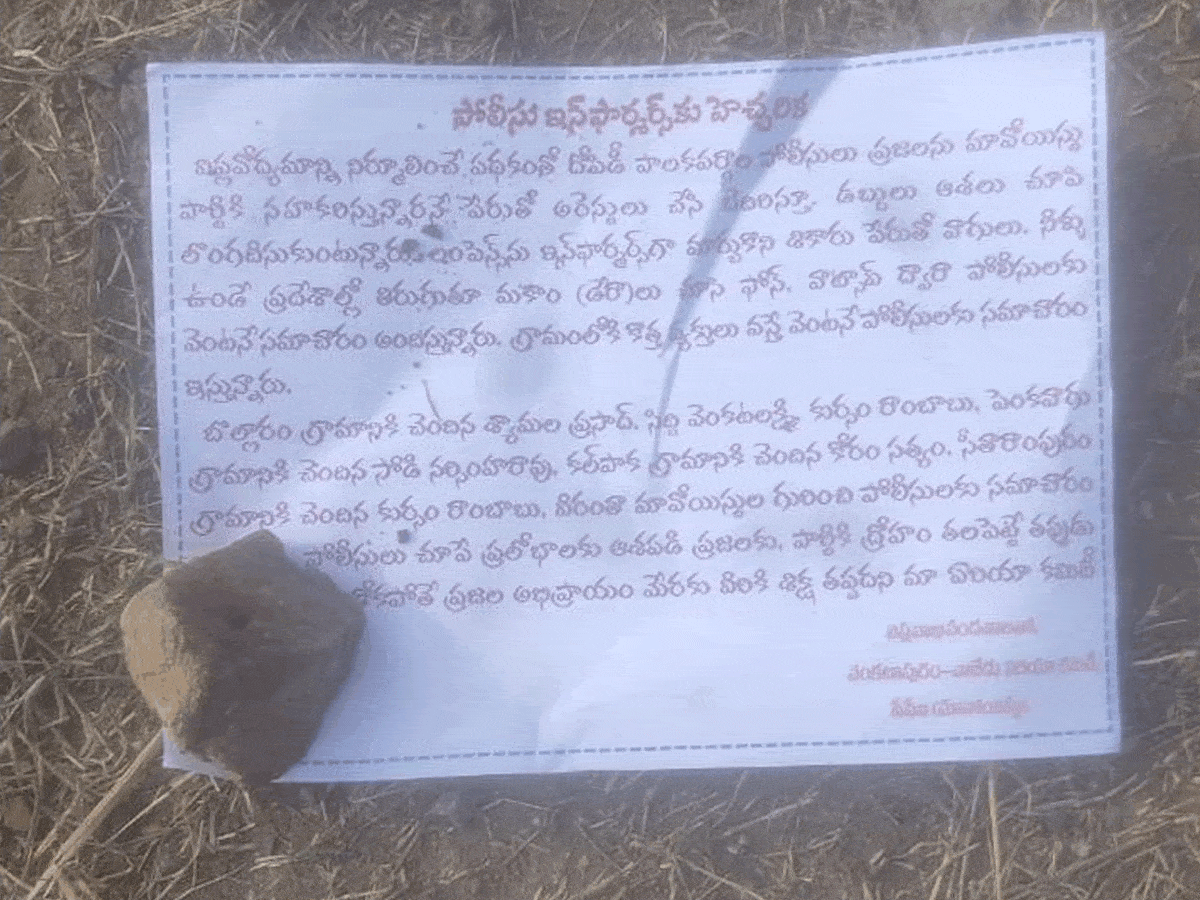 పోలీసు ఇన్‌ఫార్మర్స్‌కు హెచ్చరిక
విప్లవోద్యమాన్ని నిర్మూలించే పథకంతో దోపిడీ పాలకవర్గాల పోలీసులు ప్రజలను మావోయిస్టు
పార్టీకి సహకరిస్తున్నారనే పేరుతో అరెస్టులు చేసి బెదిరిస్తూ, డబ్బులు ఆశలు చూపి
లొంగదీసుకుంటున్నారు. లంపెన్స్‌ను ఇన్‌ఫార్మర్స్‌గా మార్చుకొని శికారు పేరుతో వాగులు, నీళ్ళు
ఉండే ప్రదేశాల్లో తిరుగుతూ మకాం (డేరా)లు చూసి ఫోన్, వాట్సాప్ ద్వారా పోలీసులకు
వెంటనే సమాచారం అందిస్తున్నారు. గ్రామంలోకి కొత్త వ్యక్తులు వస్తే వెంటనే పోలీసులకు సమాచారం
ఇస్తున్నారు.
బొల్లారం గ్రామానికి చెందిన శ్యామల ప్రసాద్, వెంకటలక్ష్మి, కుర్సం రాంబాబు, పెంకవాగు
గ్రామానికి చెందిన సోడి నర్సింహరావు, కల్‌పాక గ్రామానికి చెందిన కోరం సత్యం, సీతారాంపురం
గ్రామానికి చెందిన కుర్సం రాంబాబు, వీరంతా మావోయిస్టుల గురించి పోలీసులకు సమాచారం
పోలీసులు చూపే ప్రలోభాలకు ఆశపడి ప్రజలకు, పార్టీకి ద్రోహం తలపెట్టే తప్పుడు
ప్రజల అభిప్రాయం మేరకు వీరికి శిక్ష తప్పదని మా ఏరియా కమిటీ
విప్లవాభివందనాలతో,
వెంకటాపురం-వాజేడు ఏరియా కమిటీ
సీపీఐ (మావోయిస్టు)